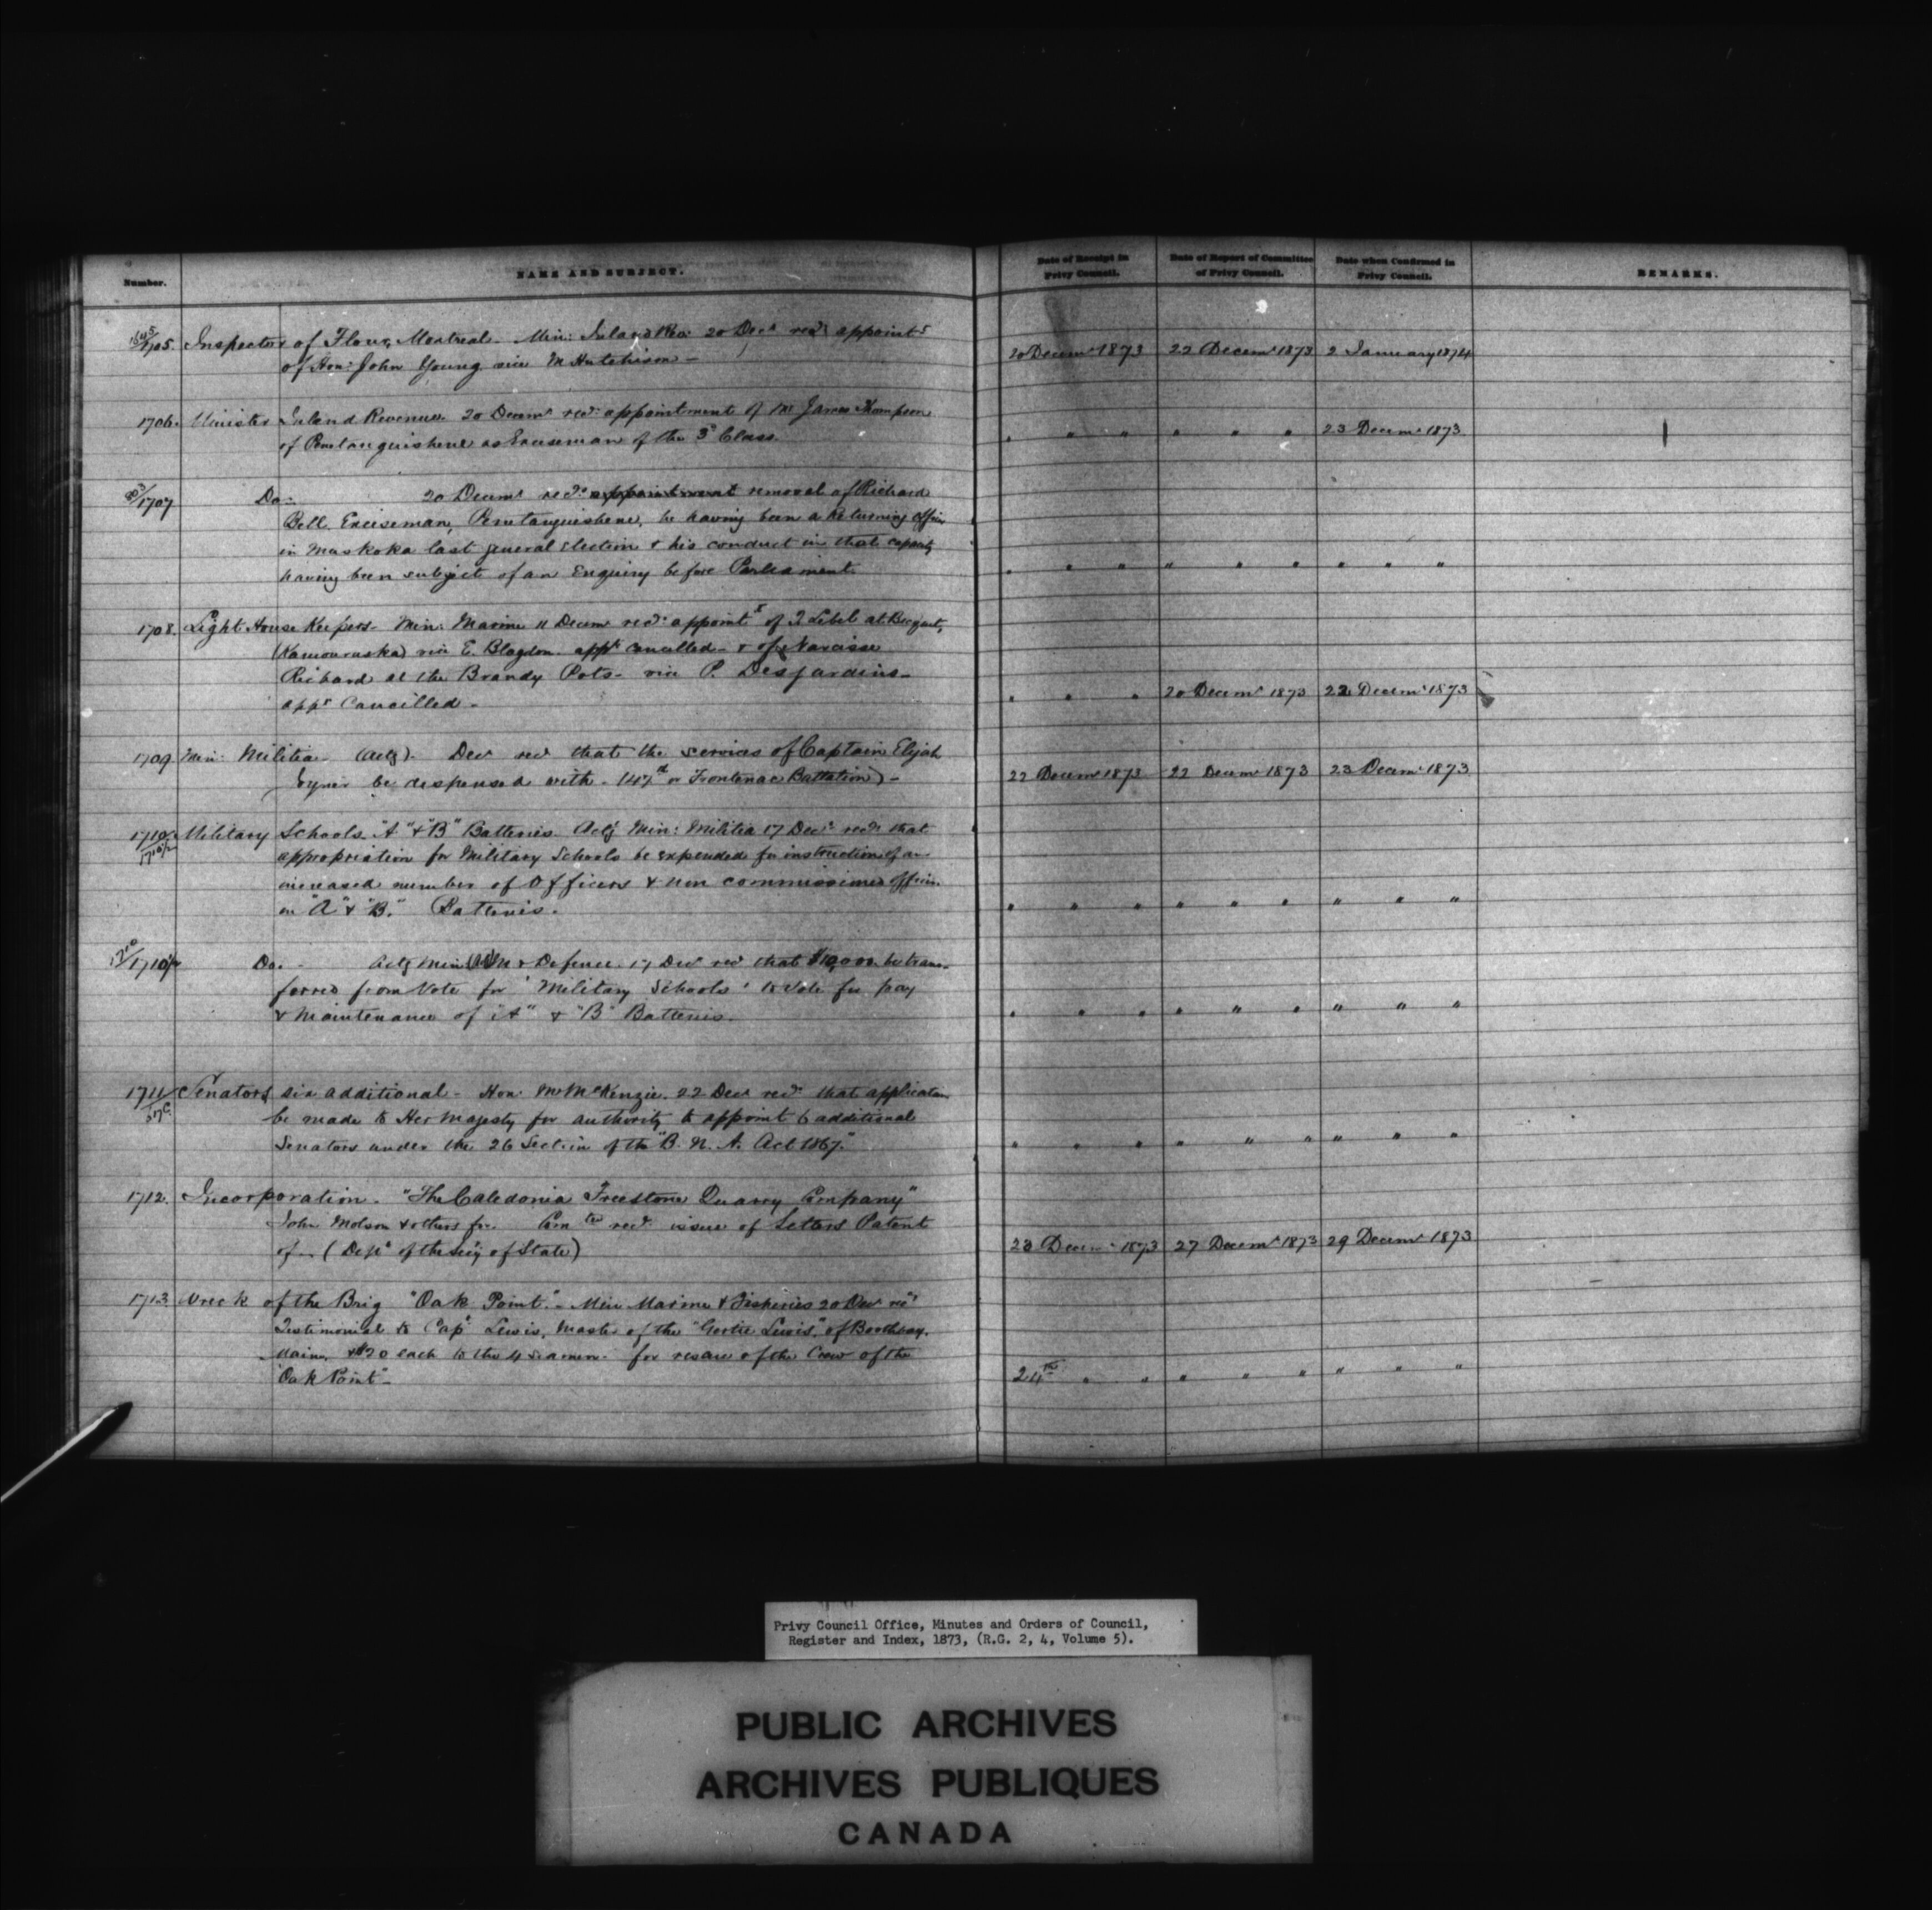 Number.
NAME AND SUBJECT.
Date of Receipt in
Privy Council.
Date of Report of Committee
of Privy Council.
Date when Confirmed in
Privy Council.
REMARKS.
1705. Inspector of Flour, Montreal. Min: Inland Rev: 20 Decr recs appoint
of Hon: John Young vice M Hutchison –
20 Decemr 1873 22 Decemr 1873 2 January 1874
1706. Minister Inland Revenue 20 Decemr recs appointment of Mr James Thompson
of Penetanguishene as Exciseman of the 3d Class.
" " " " " " 23 Decemr 1873
1707 Do: 20 Decemr recs appointment removal of Richard
Bell, Exciseman, Penetanguishene, he having been a Returning Officer
in Muskoka last general election & his conduct in that capacity
having been subject of an Enquiry before Parliament.
" " " " " " " " "
1708. Light House Keepers. Min: Marine 11 Decemr recs appoint of at
(Kamouraska) vice E. Blagdon appt cancelled – & of Narcisse
Richard at the Brandy Pots – vice P. Desjardins –
appt Cancelled –
" " " 20 Decemr 1873 22 Decemr 1873
1709 Min: Militia – (actg). Decr recs that the services of Captain Elijah
be dispensed with – (47th or Frontenac Battalion) –
22 Decemr 1873 22 Decemr 1873 23 Decemr 1873
1710 1710½ Military Schools "A" & "B" Batteries. Actg Min: Militia 17 Decr recs that
appropriation for Military Schools be expended for instruction of an
increased number of Officers & non commissioned officers
in "A" & "B." Batteries.
" " " " " " " " "
1710/1710½ Do. – Actg Min M & Defence 17 Decr recs that $10,000 be trans-
ferred from Vote for 'Military Schools' to Vote for pay
& Maintenance of "A" & "B" Batteries.
" " " " " " " " "
1711 Senators six additional – Hon: Mr McKenzie. 22 Decr recs that application
be made to Her Majesty for authority to appoint 6 additional
Senators under the 26 Section of the "B. N. A. Act 1867."
" " " " " " " " "
1712. Incorporation – "The Caledonia Freestone Quarry Company"
John Molson & others for Comtee recs issue of Letters Patent
of – (Dept of the Secy of State)
23 Decemr 1873 27 Decemr 1873 29 Decemr 1873
1713 Wreck of the Brig "Oak Point." – Min Marine & Fisheries 20 Decr recs
Testimonial to Capt Lewis, Master of the "Gertie Lewis," of Boothbay,
Maine, & $20 each to the 4 seamen – for rescue of the Crew of the
"Oak Point" –
24th " " " " " " " "
Privy Council Office, Minutes and Orders of Council,
Register and Index, 1873, (R.G. 2, 4, Volume 5).
PUBLIC ARCHIVES
ARCHIVES PUBLIQUES
CANADA